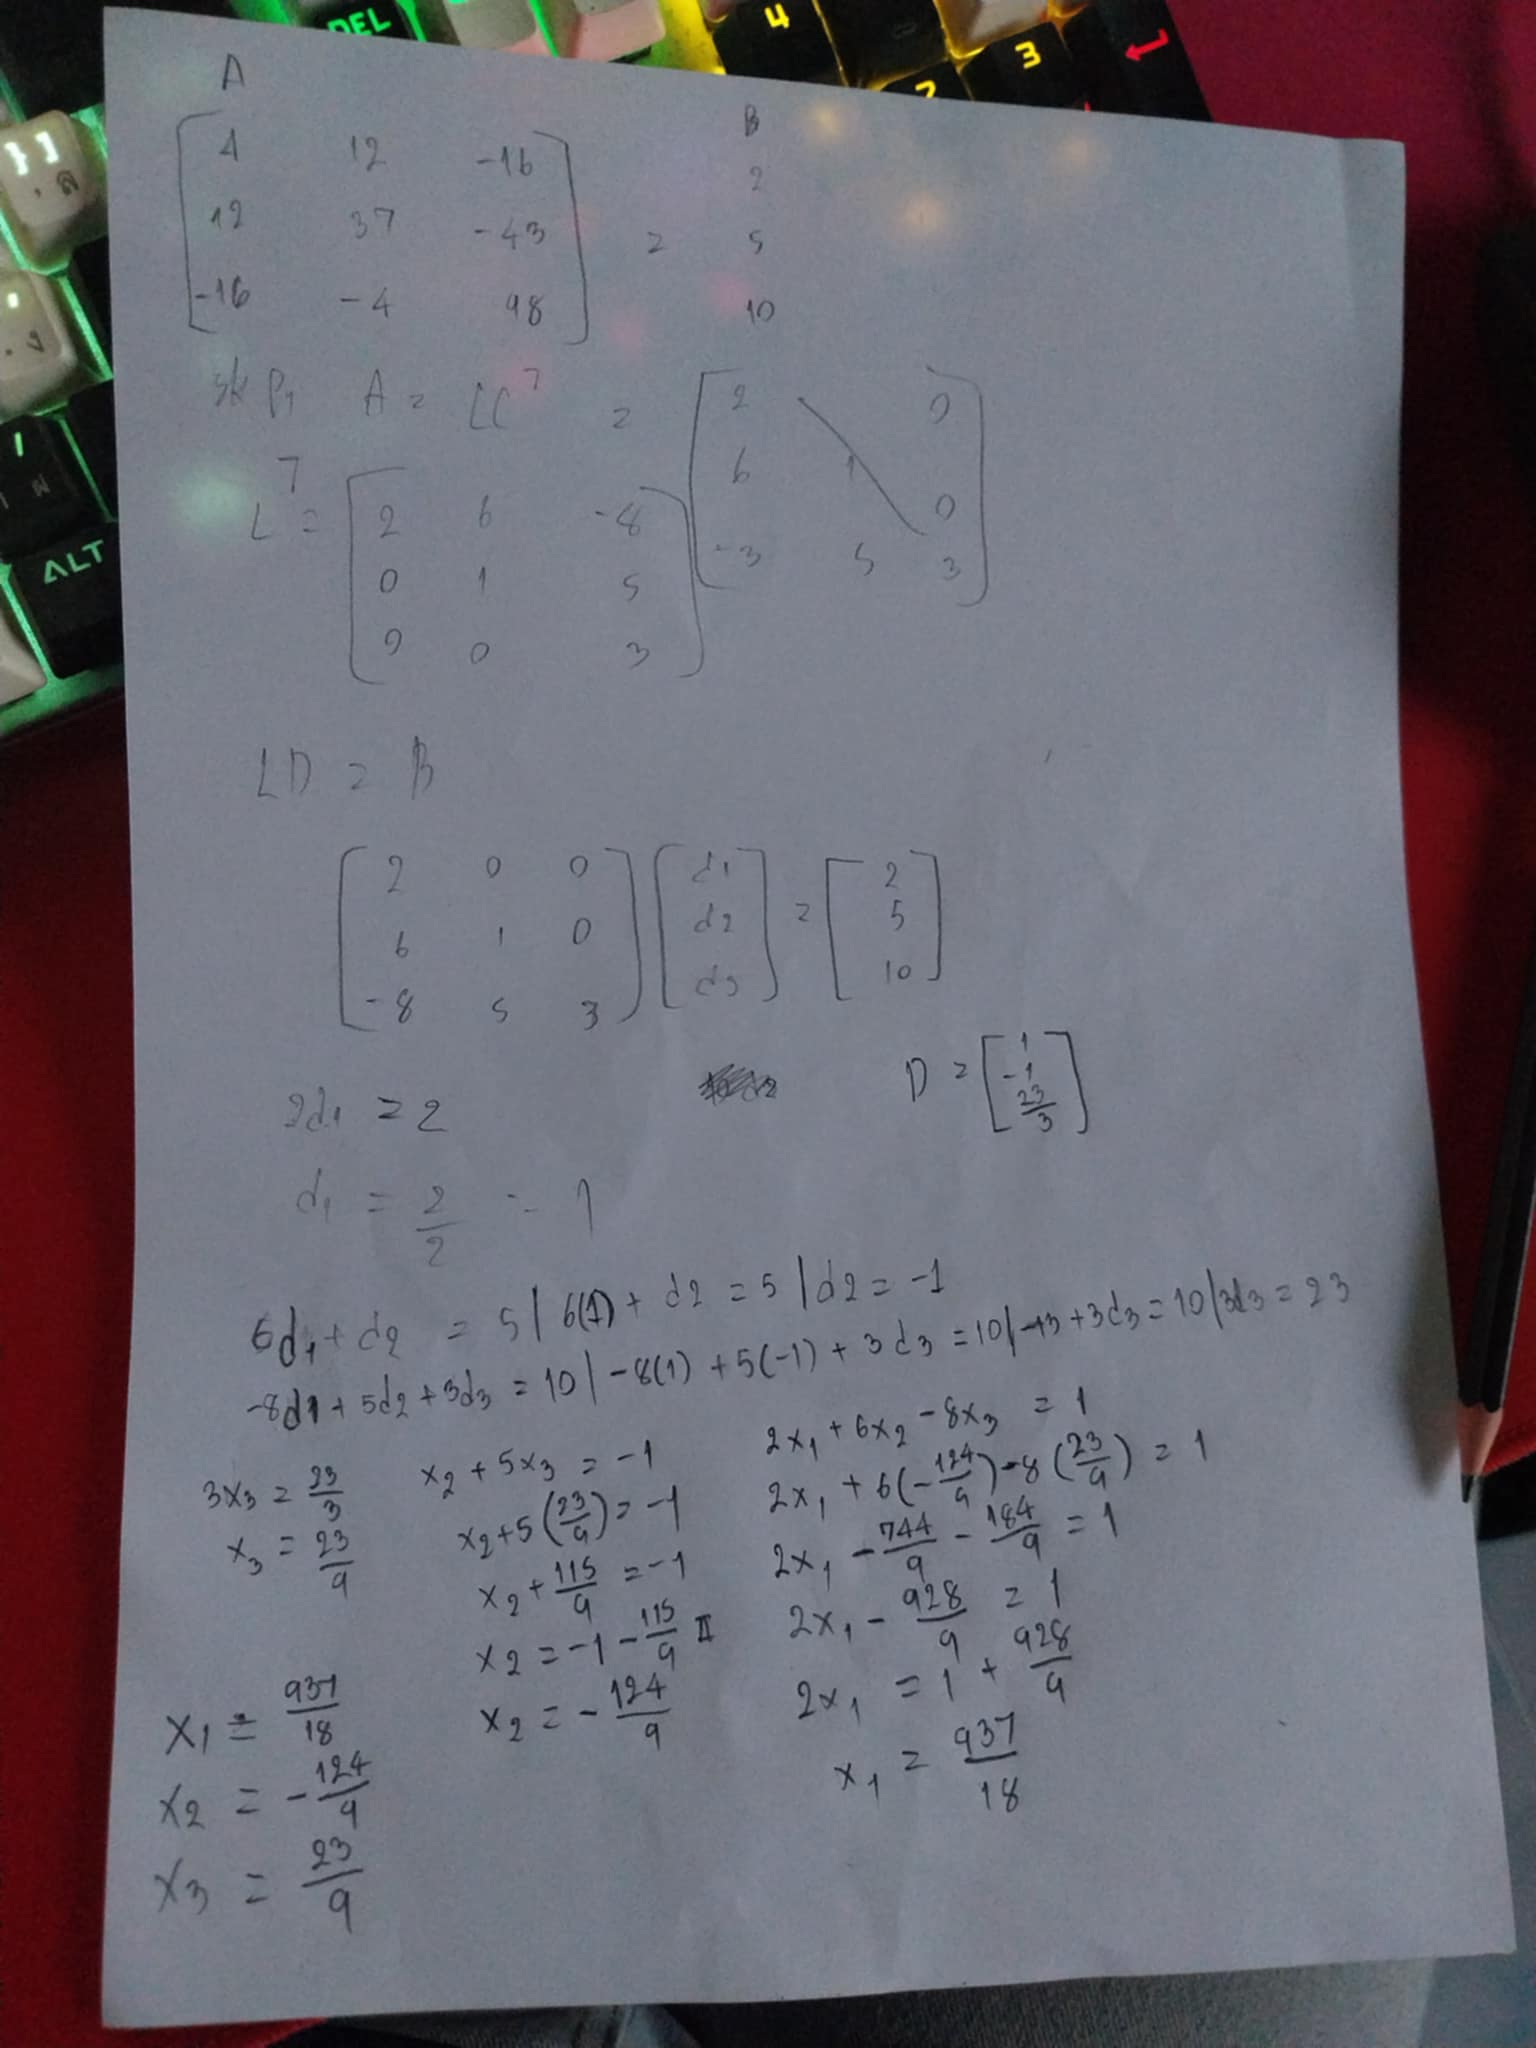 DEL
4
3
2
ALT
A
B
4 12 -16 2
12 37 -43 = 5
-16 -4 98 10
A = LL^T =
2 0
6 1 0
-3 5 3
L^T =
2 6 -8
0 1 5
0 0 3
LD = B
2 0 0 d1 2
6 1 0 d2 = 5
-8 5 3 d3 10
D = 1 -1 23/3
2d1 = 2
d1 = 2/2 = 1
6d1 + d2 = 5 | 6(1) + d2 = 5 | d2 = -1
-8d1 + 5d2 + 3d3 = 10 | -8(1) + 5(-1) + 3d3 = 10 | -13 + 3d3 = 10 | 3d3 = 23
3x3 = 23/3
x3 = 23/9
x2 + 5x3 = -1
x2 + 5(23/9) = -1
x2 + 115/9 = -1
x2 = -1 - 115/9
x2 = -124/9
2x1 + 6x2 - 8x3 = 1
2x1 + 6(-124/9) - 8(23/9) = 1
2x1 - 744/9 - 184/9 = 1
2x1 - 928/9 = 1
2x1 = 1 + 928/9
x1 = 937/18
x1 = 937/18
x2 = -124/9
x3 = 23/9